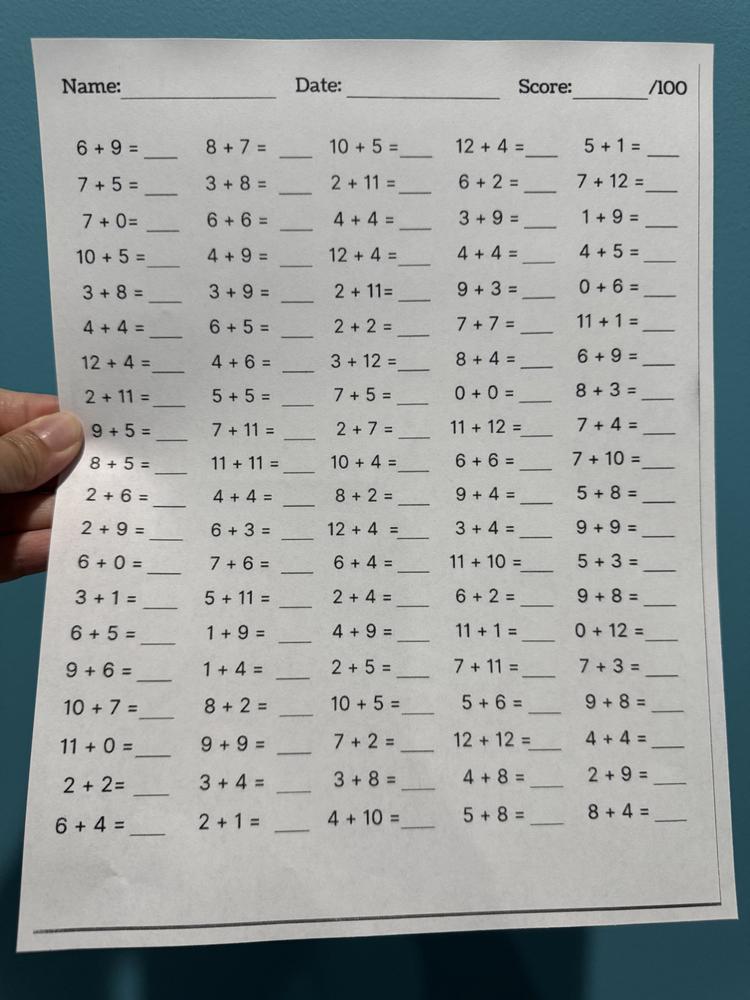 Name:____________ Date:____________ Score:______/100
6 + 9 = ___ 8 + 7 = ___ 10 + 5 = ___ 12 + 4 = ___ 5 + 1 = ___
7 + 5 = ___ 3 + 8 = ___ 2 + 11 = ___ 6 + 2 = ___ 7 + 12 = ___
7 + 0= ___ 6 + 6 = ___ 4 + 4 = ___ 3 + 9 = ___ 1 + 9 = ___
10 + 5 = ___ 4 + 9 = ___ 12 + 4 = ___ 4 + 4 = ___ 4 + 5 = ___
3 + 8 = ___ 3 + 9 = ___ 2 + 11= ___ 9 + 3 = ___ 0 + 6 = ___
4 + 4 = ___ 6 + 5 = ___ 2 + 2 = ___ 7 + 7 = ___ 11 + 1 = ___
12 + 4 = ___ 4 + 6 = ___ 3 + 12 = ___ 8 + 4 = ___ 6 + 9 = ___
2 + 11 = ___ 5 + 5 = ___ 7 + 5 = ___ 0 + 0 = ___ 8 + 3 = ___
9 + 5 = ___ 7 + 11 = ___ 2 + 7 = ___ 11 + 12 = ___ 7 + 4 = ___
8 + 5 = ___ 11 + 11 = ___ 10 + 4 = ___ 6 + 6 = ___ 7 + 10 = ___
2 + 6 = ___ 4 + 4 = ___ 8 + 2 = ___ 9 + 4 = ___ 5 + 8 = ___
2 + 9 = ___ 6 + 3 = ___ 12 + 4 = ___ 3 + 4 = ___ 9 + 9 = ___
6 + 0 = ___ 7 + 6 = ___ 6 + 4 = ___ 11 + 10 = ___ 5 + 3 = ___
3 + 1 = ___ 5 + 11 = ___ 2 + 4 = ___ 6 + 2 = ___ 9 + 8 = ___
6 + 5 = ___ 1 + 9 = ___ 4 + 9 = ___ 11 + 1 = ___ 0 + 12 = ___
9 + 6 = ___ 1 + 4 = ___ 2 + 5 = ___ 7 + 11 = ___ 7 + 3 = ___
10 + 7 = ___ 8 + 2 = ___ 10 + 5 = ___ 5 + 6 = ___ 9 + 8 = ___
11 + 0 = ___ 9 + 9 = ___ 7 + 2 = ___ 12 + 12 = ___ 4 + 4 = ___
2 + 2= ___ 3 + 4 = ___ 3 + 8 = ___ 4 + 8 = ___ 2 + 9 = ___
6 + 4 = ___ 2 + 1 = ___ 4 + 10 = ___ 5 + 8 = ___ 8 + 4 = ___